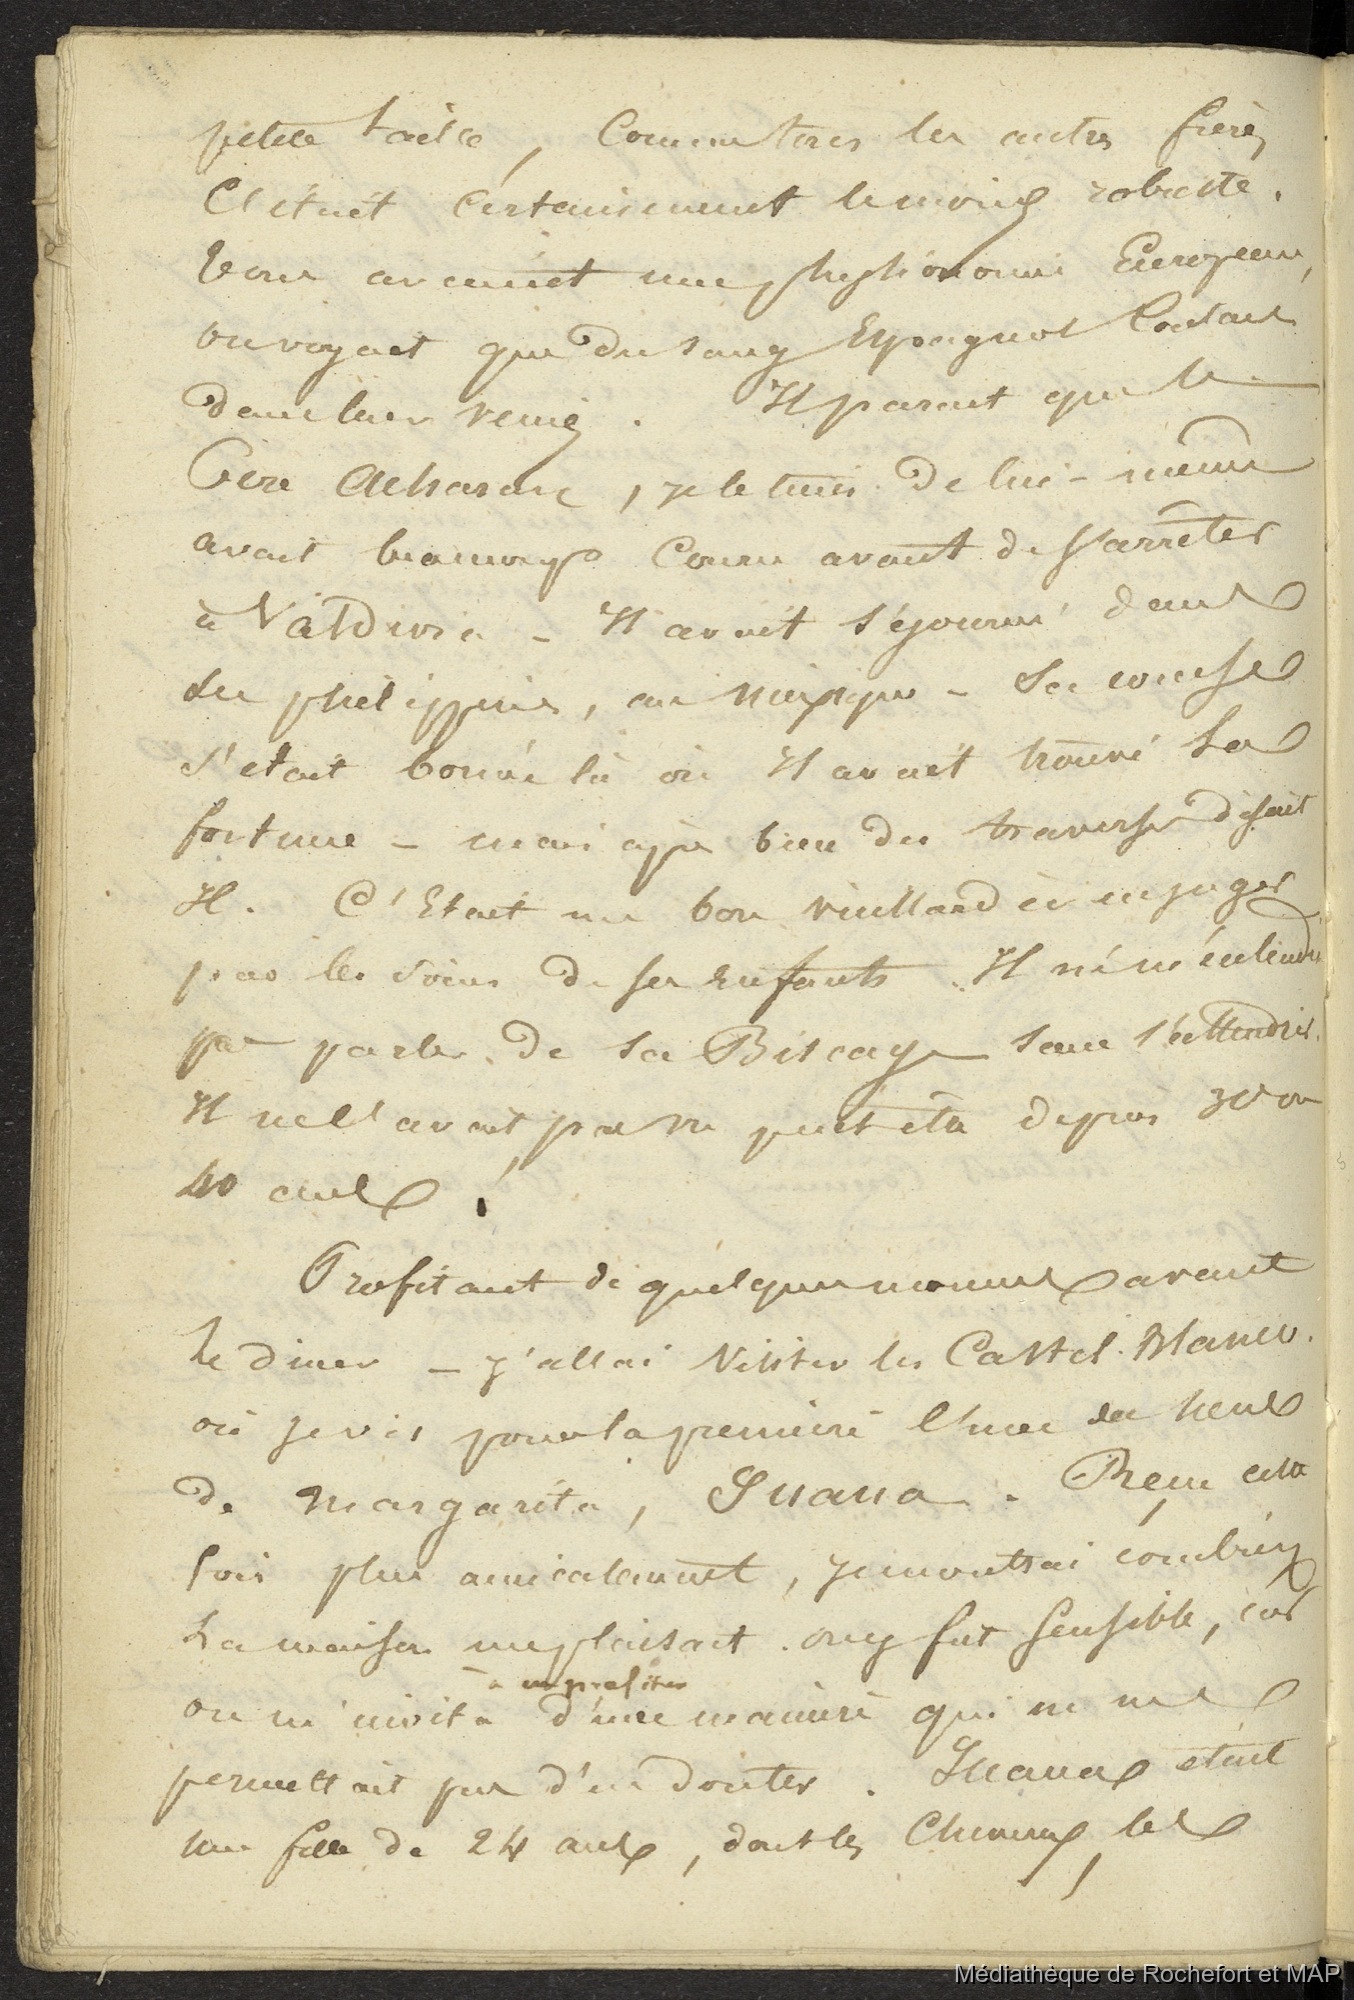 petite taille, Comme tous les autres frères
C'était certainement le moins robuste.
Tous avaient une physionomie Européenne,
on voyait que du sang Espagnol Coulait
dans leurs veines. Il parait que le
Père Acharan, je le tiens de lui-même
avait beaucoup Couru avant de s'arrêter
à Valdivia - Il avait séjourné dans
les philippines, au Mexique - Sa course
s'était bornée là où Il avait trouvé la
fortune - mais après bien des traverses disait
Il. C'Etait un bon vieillard à en juger
par les soins de ses enfants. Il ne m'entendit
pas parler de sa Biscaye sans s'attendrir.
Il ne l'avait pas vu peut être depuis 30 ou
40 ans !
Profitant de quelques moments avant
le diner - j'allai visiter les Castel. Blanco.
où je vis pour la première l'une des soeurs
de Margarita, Juana. Reçu cette
fois plus amicalement, je montrai combien
la maison me plaisait. on y fut sensible, car
à en profiter
on m'invita d'une manière qui ne me
permettait pas d'en douter. Juana était
une fille de 24 ans, dont les Cheveux, les
Médiathèque de Rochefort et MAP